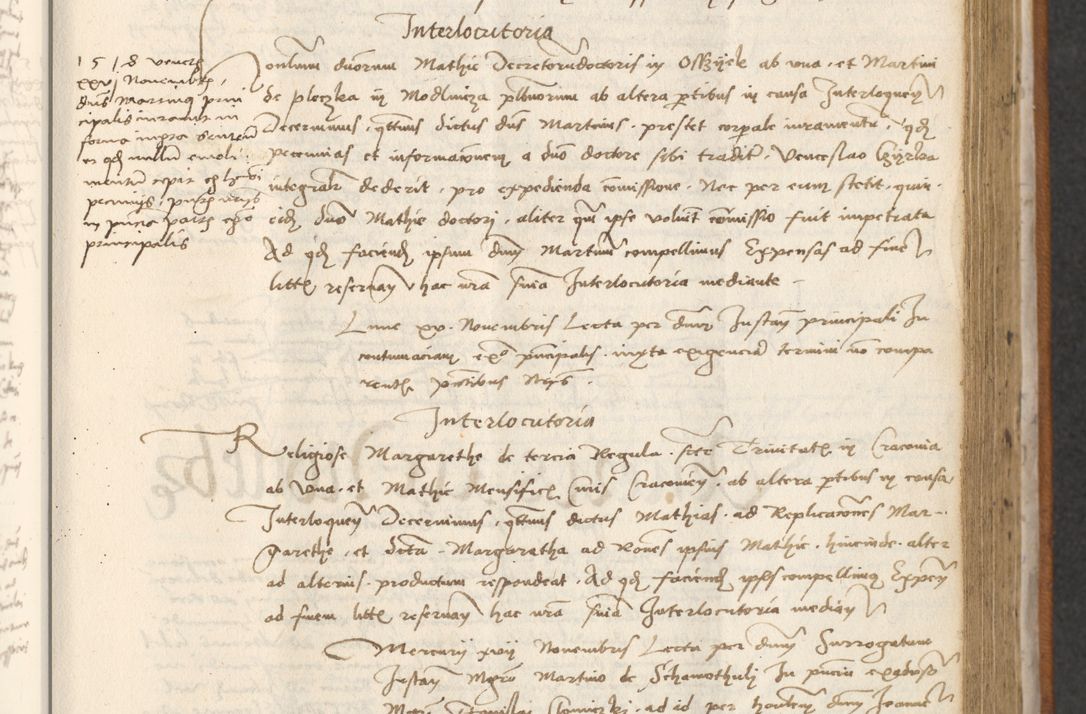 Interlocutoria
1518 Veneris
xxvj Novembris
dns Martinus prin
cipalis iuravit in
forma iuxta sententiam
et qd nullum emoli
mentum cepit ex hmoi
pecuniis, putre
in pncia partis
principalis
venerabilium dominorum Mathie Decretorum doctoris in Osszyek ab una et Martini
de ploczka in Modlnicza plbnorum ab altera ptibus in causa Interloquen
Decernimus qtenus dictus dns Martinus prestet corporale iuramentu qd
pecunias et informacionem a dno doctore sibi tradit Venceslao Czyrka
integraliter dederit pro expedienda comissione Nec per eum stetit quin
eidem dno Mathie doctori aliter qm ipse voluit comissio fuit impetrata
Ad qd faciend ipsum dnm Martinum compellimus Expensas ad fine
littis reservan hac nra snia Interlocutoria mediante
Lune xv Novembris Lecta per dnm Instan principali In
contumaciam ex pncipalis iuxta exigencia termini no compa
rentis pntibus Notariis
Interlocutoria
Religiose Margarethe de tercia Regula sctae Trinitatis in Cracovia
ab Una et Mathie Mensificis Civis Cracovien ab altera ptibus in causa
Interloquen Decernimus qtenus dictus Mathias ad Replicaciones Mar-
garethe et dicta Margaretha ad Rones ipsius Mathie hincinde alter
ad alterius productum respondeat Ad qd faciend ipsos compellimus Expen
ad finem littis reservan hac nra snia Interlocutoria median
Mercurii xvij Novembris Lecta per dnm Surrogatum
Instan Mgro Martino de Schamothuli In pncia ex adverso
Mgri Stanislai Slomiczki ad id per honorabilem dnm Joannem